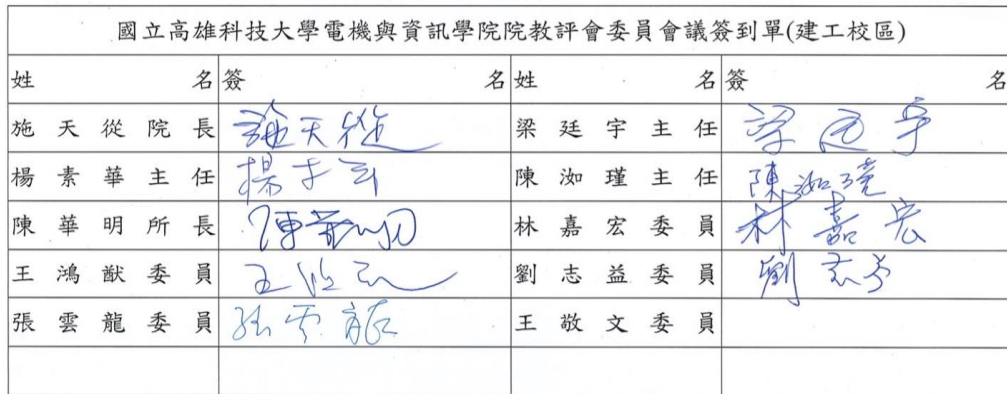 國立高雄科技大學電機與資訊學院院教評會委員會議簽到單(建工校區)
姓名 簽名 姓名 簽名
施天從院長 施天從 梁廷宇主任 梁廷宇
楊素華主任 楊 陳洳瑾主任 陳洳瑾
陳華明所長 陳華明 林嘉宏委員 林嘉宏
王鴻猷委員 王 劉志益委員 劉志益
張雲龍委員 張雲龍 王敬文委員